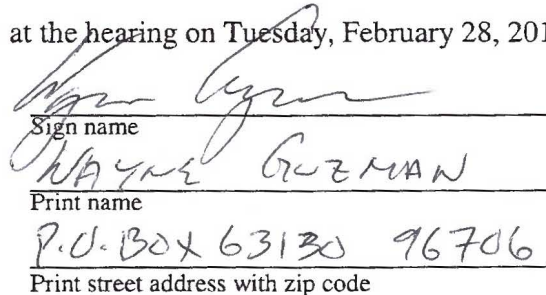 at the hearing on Tuesday, February 28, 201
Sign name
WAYNE GUZMAN
Print name
P.O. BOX 63130 96706
Print street address with zip code